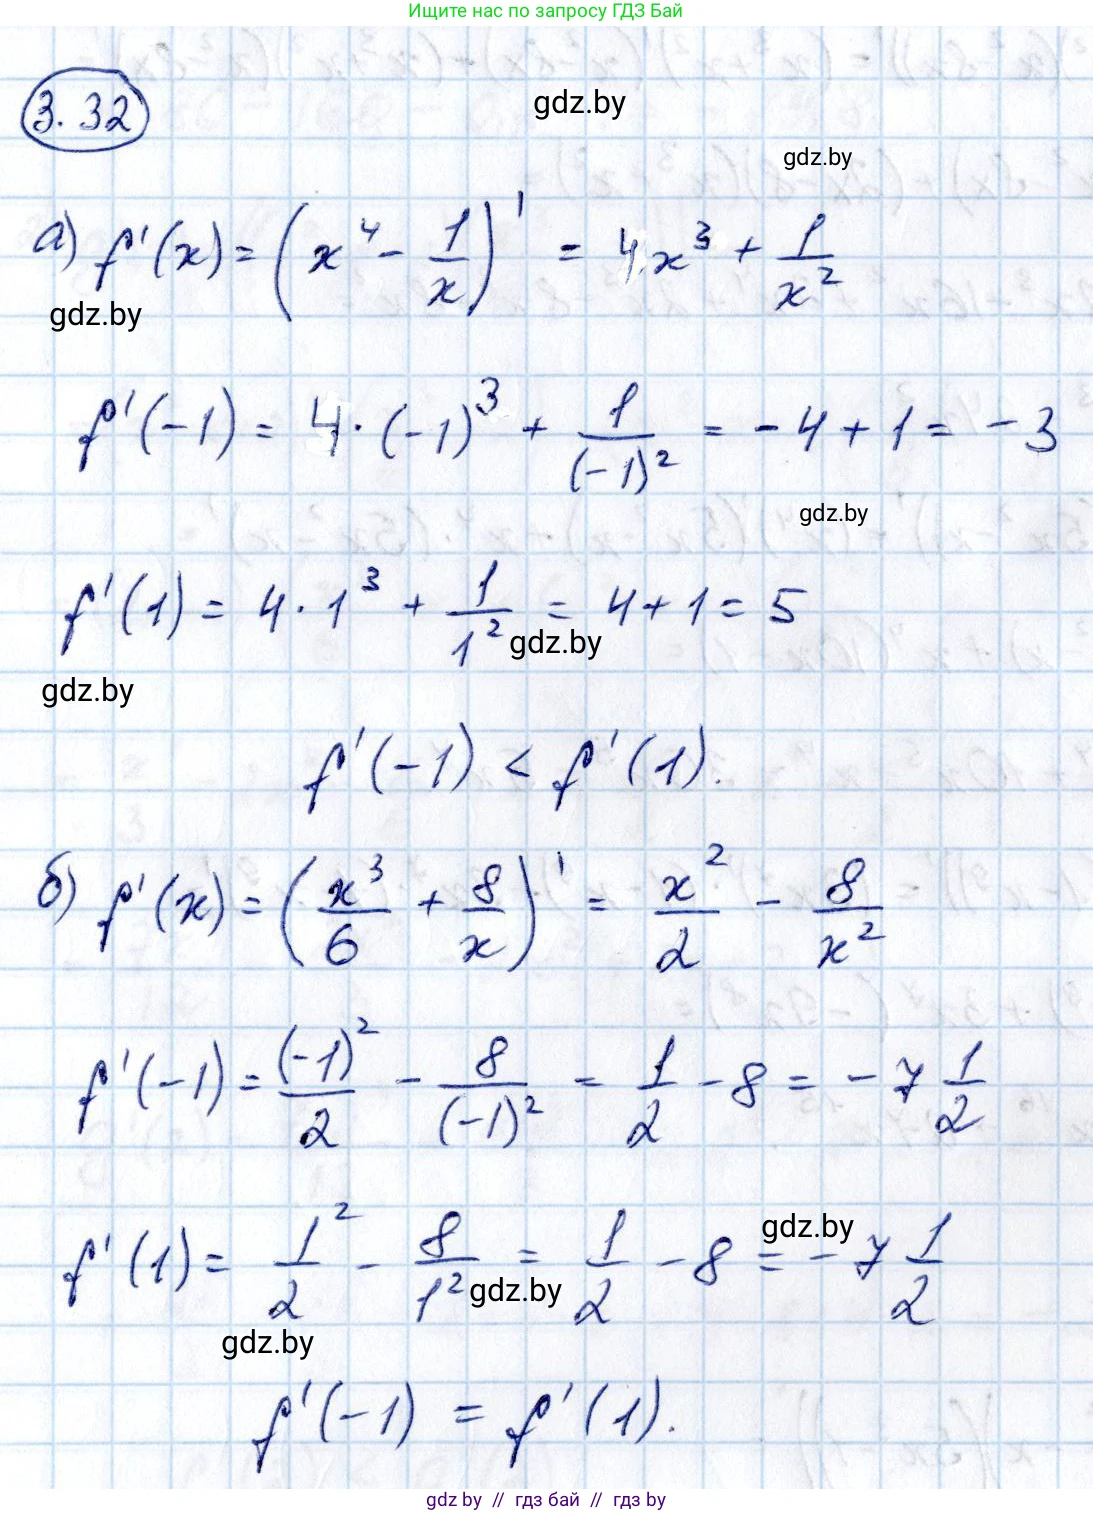 Ищите нас по запросу ГДЗ Бай
3.32
gdz.by
gdz.by
а) f'(x) = (x⁴ - 1/x)' = 4x³ + 1/x²
gdz.by
f'(-1) = 4·(-1)³ + 1/(-1)² = -4+1 = -3
gdz.by
f'(1) = 4·1³ + 1/1² = 4+1 = 5
gdz.by
gdz.by
f'(-1) < f'(1).
б) f'(x) = (x³/6 + 8/x)' = x²/2 - 8/x²
f'(-1) = (-1)²/2 - 8/(-1)² = 1/2 - 8 = -7 1/2
gdz.by
f'(1) = 1²/2 - 8/1² = 1/2 - 8 = -7 1/2
gdz.by
gdz.by
f'(-1) = f'(1).
gdz by // гдз бай // гдз by